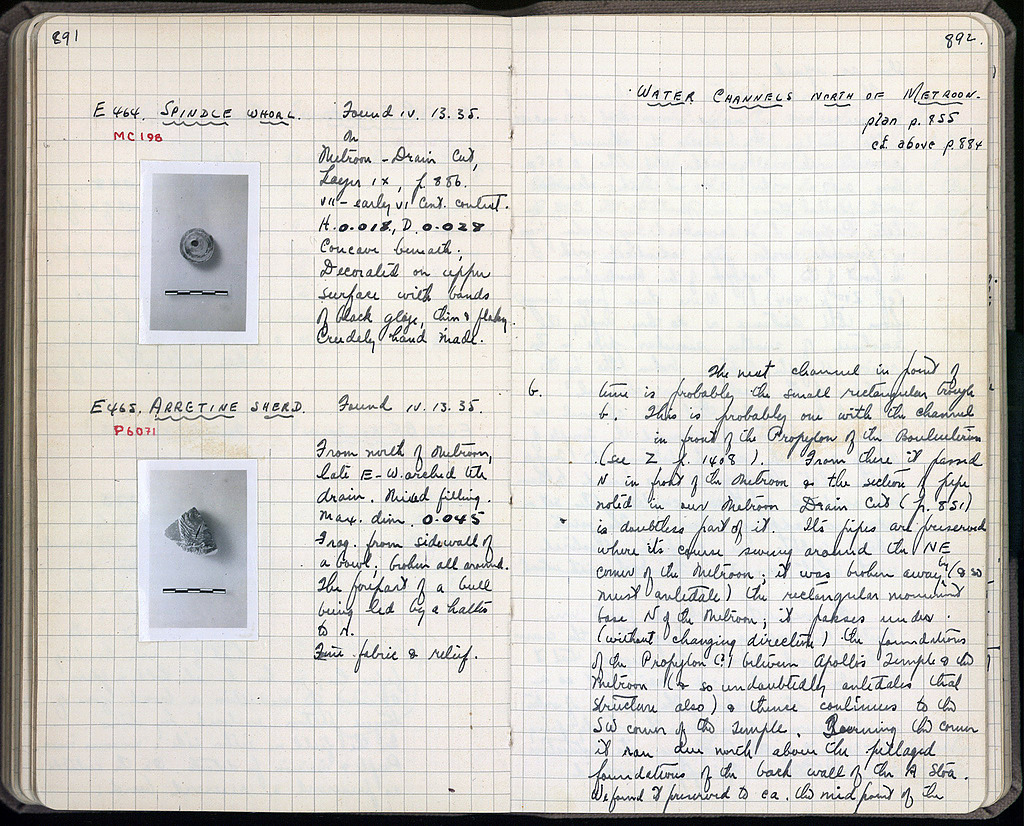 891
E 464. SPINDLE WHORL. Found IV. 13. 35.
MC 198
In
Metroon - Drain Cut,
Layer IX, p. 886.
VII - early VI Cent. context.
H. 0.018, D. 0.028
Concave beneath;
Decorated on upper
surface with bands
of black glaze, thin & flaky.
Crudely hand made.
E 465. ARRETINE SHERD. Found IV. 13. 35.
P 6071
From north of Metroon,
late E-W. arched tile
drain. Mixed filling.
Max. dim. 0.045
Frag. from sidewall of
a bowl; broken all around.
The forepart of a bull
being led by a halter
to r.
Fine fabric & relief.
892.
WATER CHANNELS NORTH OF METROON.
plan p. 855
cf. above p. 884
The next channel in point of
6. time is probably the small rectangular trough
6. This is probably one with the channel
in front of the Propylon of the Bouleuterion
(see Z p. 1408). From there it passed
N in front of the Metroon & the section of pipe
noted in our Metroon Drain Cut (p. 851)
is doubtless part of it. Its pipes are preserved
where its course swing around the NE
corner of the Metroon; it was broken away by (& so
must antedate) the rectangular monument
base N of the Metroon; it passes under
(without changing direction) the foundations
of the Propylon (?) between Apollo's Temple & the
Metroon (& so undoubtedly antedates that
structure also) & thence continues to the
SW corner of the Temple. Rounding the corner
it ran due north above the pillaged
foundations of the back wall of the A Stoa.
We found it preserved to ca. the mid point of the